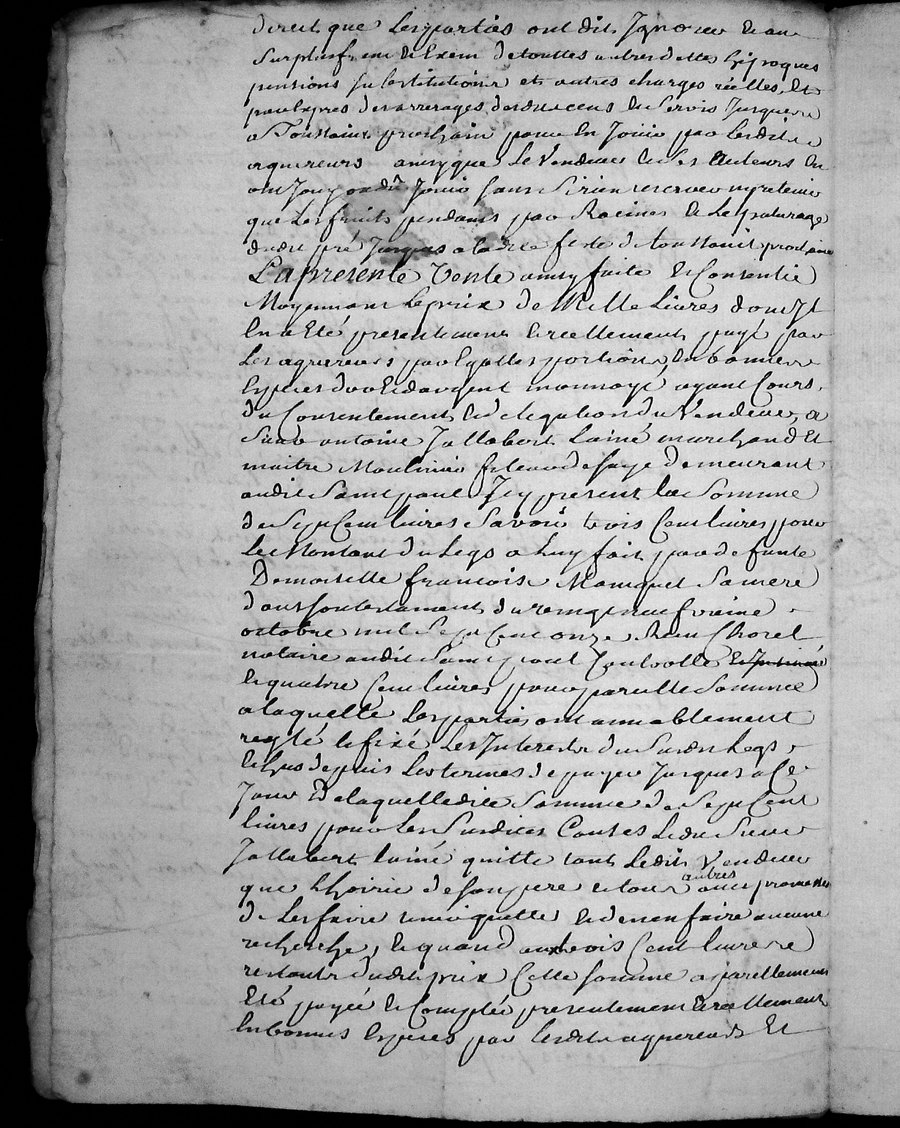 direct que les parties ont dit Ignorer et au
surplus franc et Exem de touttes autres dettes hipoques
pensions substitutions et autres charges réelles, et
par Expres des arrerages desdits cens et servis Jusques
a Toussaint prochain pour En Jouir par lesdits
aquereurs ainsy que le Vendeur et ses autheurs En
ont Jouy ou dû Jouir sans se rien reserver ny retenir
que les fruits pendants par Racines et le paturage
dudit pré Jusques a ladite feste de toussaint prochaine
La presente Vente ainsy faite et Consentie
Moyennant le prix de Mille Livres dont Il
En a Eté presentement et reellement payé par
les aquereurs par Egalles portions, En bonnes
Especes d'or et d'argent monnoyé ayant Cours,
du Consentement et delegation du Vendeur, a
Sieur antoine Jallabert Lainé marchand et
maitre Moulinier de soye demeurant
audit Saint paul Icy present la Somme
de Sept Cent livres Savoir trois Cent livres pour
le Montant du Legs a Luy fait par defunte
Demoiselle francoise Maniquet Sa mere
dans son testament du vingt neufvieme
octobre mil Sept Cent onze Receu Chorel
notaire audit Saint paul Controllé et Insinué
et quatre Cent livres pour pareille Somme
a laquelle les parties ont amiablement
reglé et fixé les Interests du Susdit Legs
Echus depuis les termes de payer Jusques a Ce
Jour De laquelle dite Somme de Sept Cent
livres pour les Susdites Causes ledit Sieur
Jallabert lainé quitte tant ledit Vendeur
que l'hoirie de son pere et tous autres avec promesse
de les faire tenir quitte et de n'en faire aucune
recherche, et quand aux trois Cent livres
restants dudit prix Cette somme a pareillement
Eté payée et Comptée presentement et reellement
En bonnes Especes par lesdits aquereurs Et